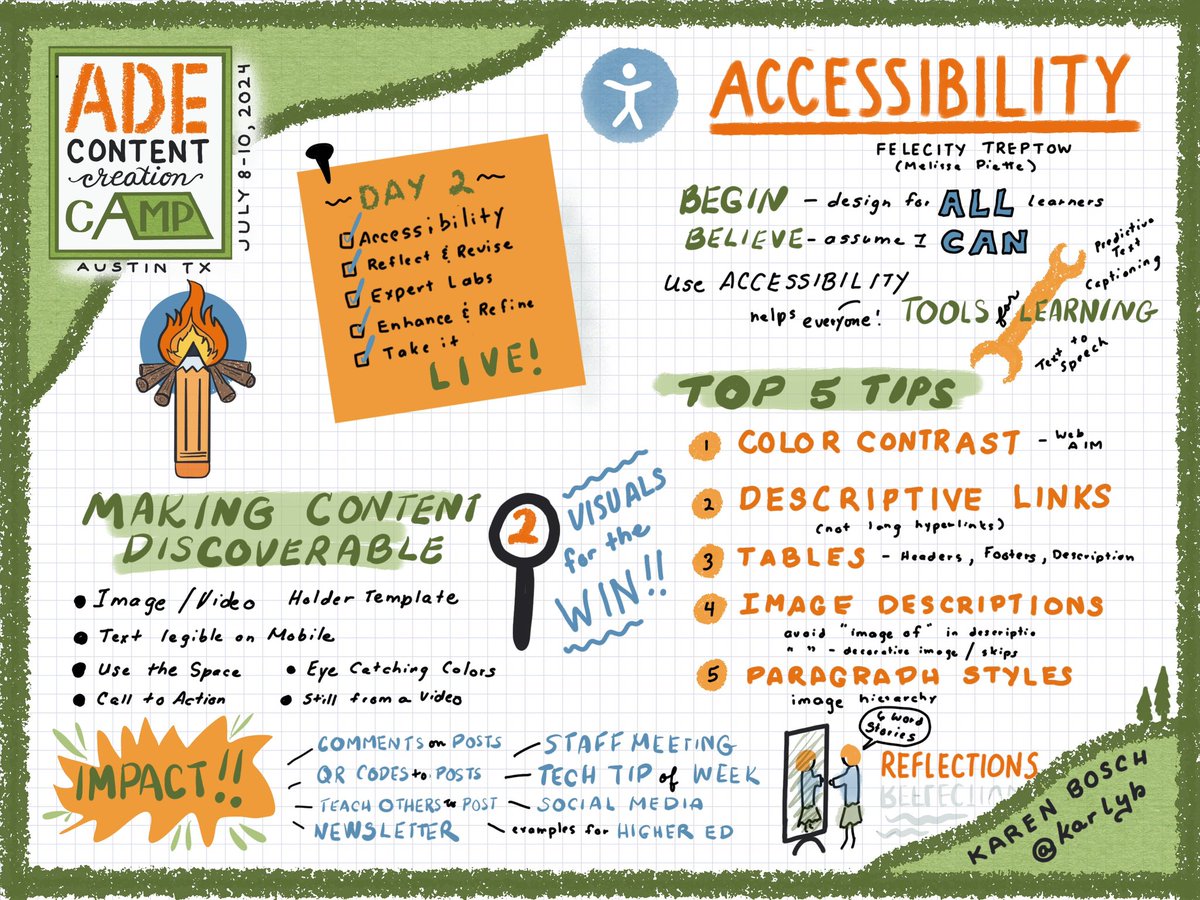 ADE
CONTENT
creation
CAMP
JULY 8-10, 2024
AUSTIN TX
DAY 2
Accessibility
Reflect & Revise
Expert Labs
Enhance & Refine
Take it
LIVE!
ACCESSIBILITY
FELECITY TREPTOW
(Melissa Piette)
BEGIN - design for ALL learners
BELIEVE - assume I CAN
Use ACCESSIBILITY
helps everyone!
TOOLS for LEARNING
Predictive
Text
Captioning
Text to
Speech
TOP 5 TIPS
1 COLOR CONTRAST - Web
AIM
2 DESCRIPTIVE LINKS
(not long hyperlinks)
3 TABLES - Headers, Footers, Description
4 IMAGE DESCRIPTIONS
avoid "image of" in descriptio
" " - decorative image / skips
5 PARAGRAPH STYLES
image hierarchy
MAKING CONTENT
DISCOVERABLE
2
VISUALS
for the
WIN!!
• Image / Video Holder Template
• Text legible on Mobile
• Use the Space • Eye Catching Colors
• Call to Action • Still from a Video
IMPACT!!
COMMENTS on POSTS
QR CODES to POSTS
TEACH OTHERS to POST
NEWSLETTER
STAFF MEETING
TECH TIP of WEEK
SOCIAL MEDIA
examples for HIGHER ED
6 word
Stories
REFLECTIONS
REFLECTIONS
KAREN BOSCH
@karlyb